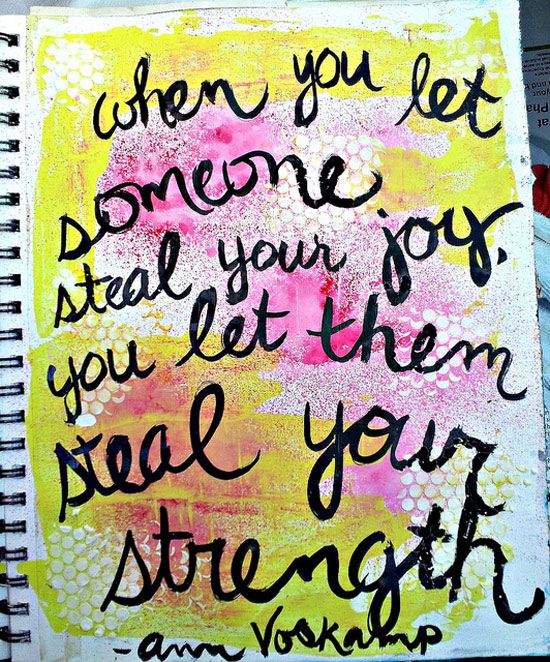 when you let
someone
steal your joy,
you let them
steal your
strength
-ann Voskamp